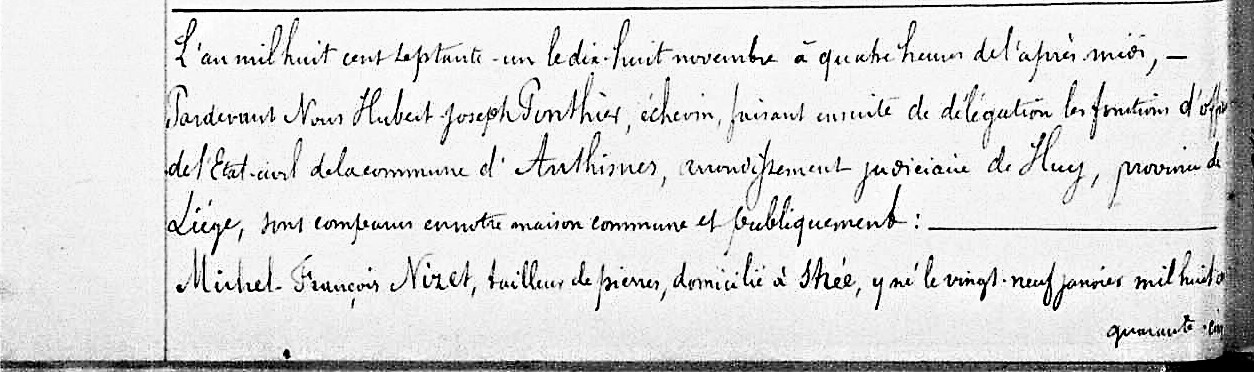 L'an mil huit cent septante-un le dix-huit novembre à quatre heures de l'après midi, —
Pardevant Nous Hubert Joseph Ponthier, échevin, faisant ensuite de délégation les fonctions d'offi
de l'Etat-civil de la commune d'Anthisnes, arrondissement judiciaire de Huy, province de
Liége, sont comparus en notre maison commune et publiquement :
Michel-François Nizet, tailleur de pierres, domicilié à Strée, y né le vingt-neuf janvier mil huit c
quarante-cin